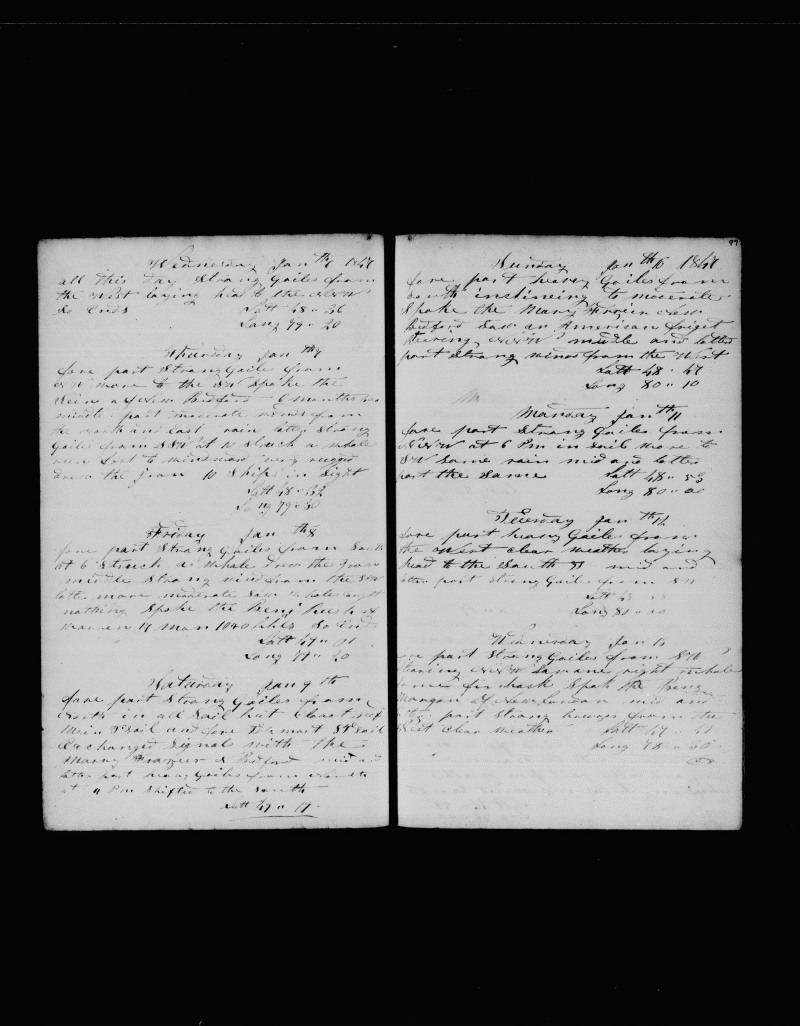 Wednesday Jan th6 1847
all this day Strong Gailes from
the West laying hea to the NNW
So Ends Latt 48 " 36
Long 79 " 20
Thursday Jan th7
fore part Strong Gailes from
NW wore to the SW Spoke the
of New Bedford 6 months
middle part moderate winds from
the north and east rain latter Strong
Gailes from SSW at 10 Struck a whale
run fast to windward very rugged
drew the iron 10 Ships in Sight
Latt 48 " 32
Long 79 " 30
Friday Jan th8
fore part Strong Gailes from South
at 6 Struck a whale drew the Iron
middle Strong wind from the SW
latter more moderate Saw whales caught
nothing Spoke the Benj Rush of
Warren 17 Mon 1040 bbls So Ends
Latt 47 " 01
Long 79 " 20
Saturday Jan 9 th
fore part Strong Gailes from
North in all Sail but Close reef
Main T Sail and fore T Sail
Exchanged Signals with the
Marry Frazier of Bedford mid and
latter part heavy Gailes from North
at 11 Pm Shifted to the South
Latt 47 " 17
97
Sunday Jan th10 1847
fore part heavy Gailes from
South inclineing to moderate
Spoke the Mary Frazier New
Bedford Saw an American Friget
Stearing NNW middle and latter
part Strong winds from the West
Latt 48 " 47
Long 80 " 10
Manday Jan th11
fore part Strong Gailes from
NNW at 6 Pm in Sail wore to
SW Some rain mid and latter
part the Same Latt 48 " 53
Long 80 " 00
Teuesday Jan th12
fore part heavy Gailes from
the West clear weather laying
head to the South mid and
latter part Strong Gailes from SW
Latt 48
Long 80 " 10
Wednesday Jan 13
fore part Strong Gailes from SW
Stearing NNW Saw one right whale
Some finbacks Spok the Benj
Morgan of New London mid and
latter part Strong breezes from the
West Clear weather Latt 47
Long 78